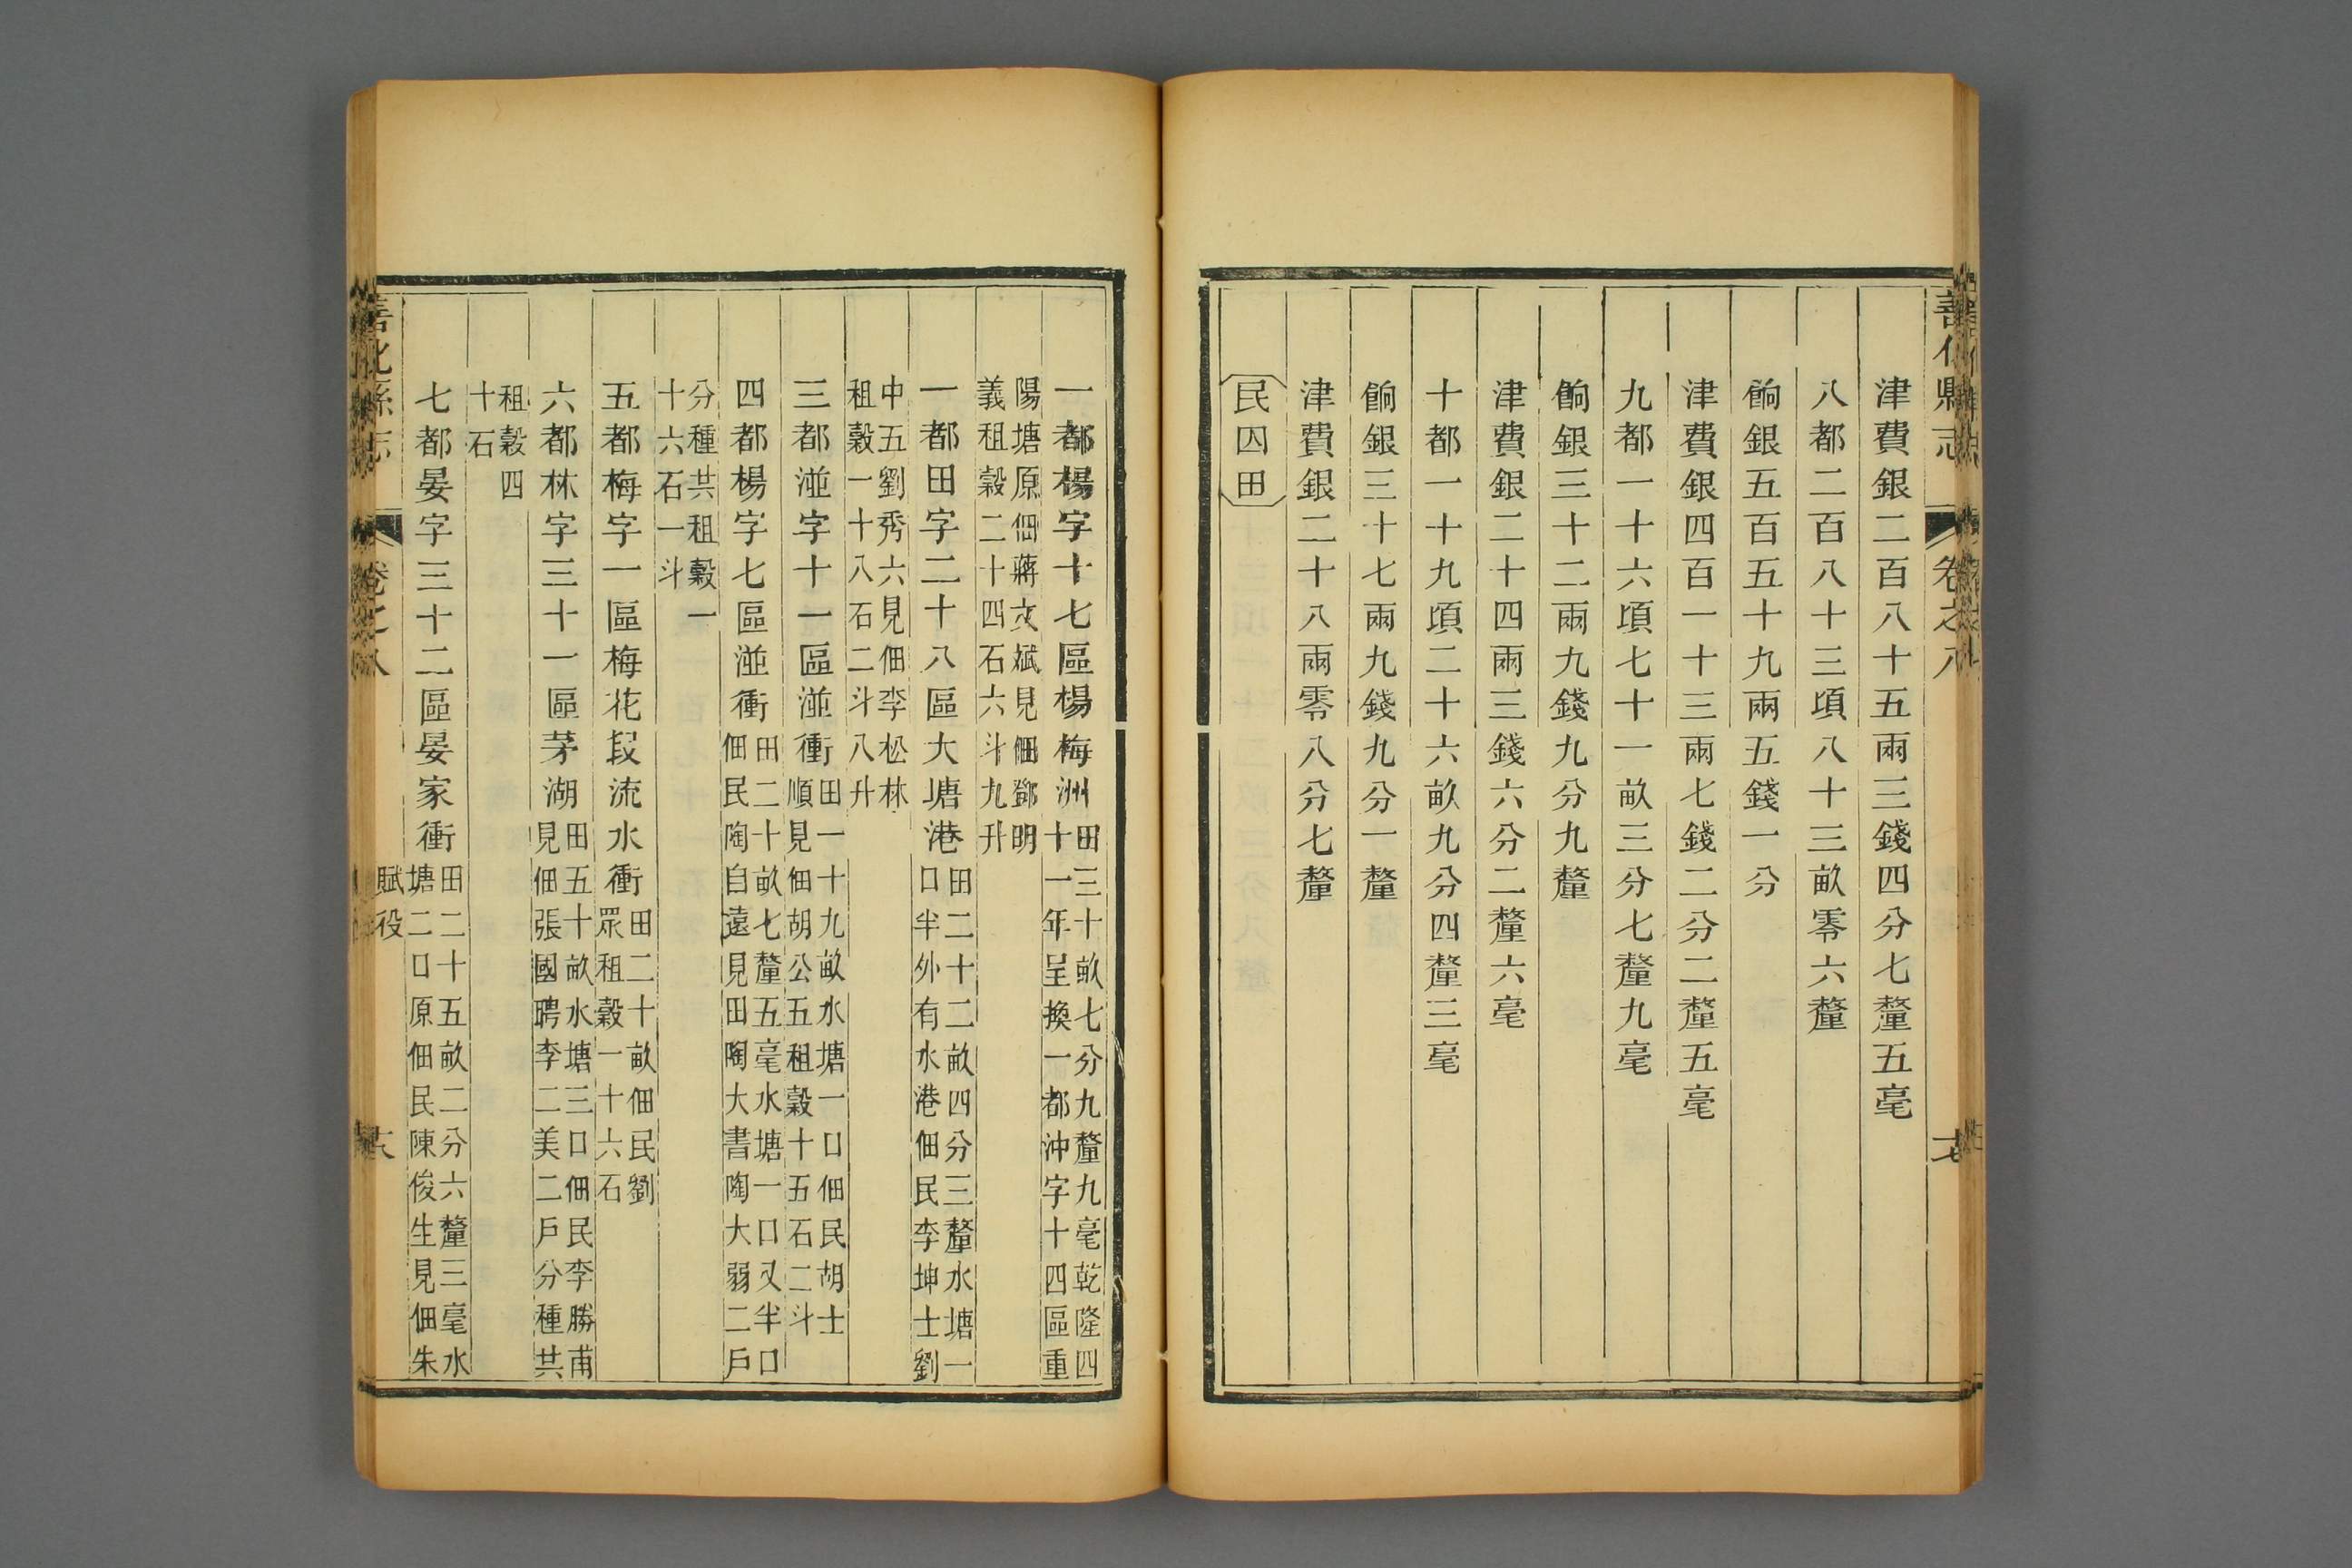 津費銀二百八十五兩三錢四分七釐五毫
八都二百八十三頃八十三畝零六釐
餉銀五百五十九兩五錢一分
津費銀四百一十三兩七錢二分二釐五毫
九都一十六頃七十一畝三分七釐九毫
餉銀三十二兩九錢九分九釐
津費銀二十四兩三錢六分二釐六毫
十都一十九頃二十六畝九分四釐三毫
餉銀三十七兩九錢九分一釐
津費銀二十八兩零八分七釐
民囚田
一都楊字十七區楊梅洲田三十畝七分九釐九毫乾隆四
十一年呈換一都沖字十四區重
陽塘原佃蔣文斌見佃鄧明
義租穀二十四石六斗九升
一都田字二十八區大塘港田二十二畝四分三釐水塘一
口半外有水港佃民李坤士劉
中五劉秀六見佃李松林
租穀一十八石二斗八升
三都湴字十一區湴衝田一十九畝水塘一口佃民胡士
順見佃胡公五租穀十五石二斗
四都楊字七區湴衝田二十畝七釐五毫水塘一口又半口
佃民陶自遠見田陶大書陶大弱二戶
分種共租穀一
十六石一斗
五都梅字一區梅花段流水衝田二十畝佃民劉
眾租穀一十六石
六都林字三十一區茅湖田五十畝水塘三口佃民李勝甫
見佃張國聘李二美二戶分種共
租穀四
十石
七都晏字三十二區晏家衝田二十五畝二分六釐三毫水
塘二口原佃民陳俊生見佃朱
善化縣志 卷之八 賦役